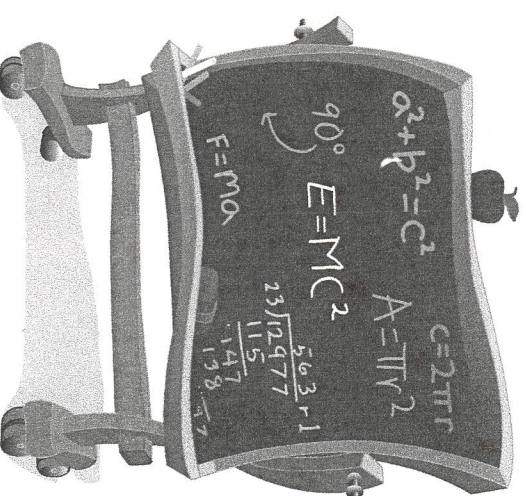 a²+b²=c²
c=2πr
A=πr²
90°
E=MC²
F=ma
563 r 1
23)12977
115
147
138
97